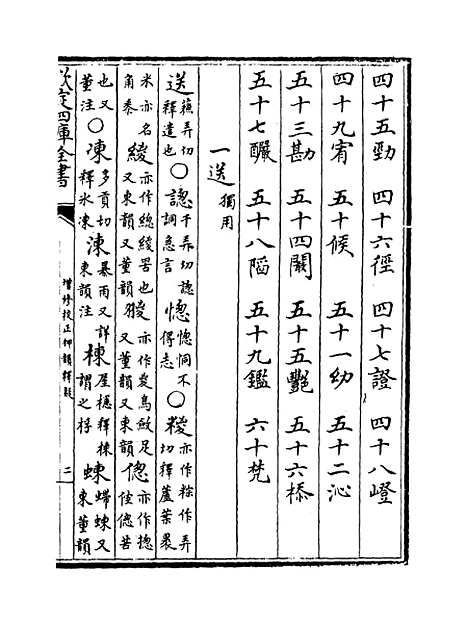 四十五勁　四十六徑　四十七證　四十八嶝
四十九宥　五十候　五十一幼　五十二沁
五十三勘　五十四闞　五十五豔　五十六㮇
五十七釅　五十八陷　五十九鑑　六十梵
一送獨用
送蘇弄切釋遣也○謥千弄切謥詷急言憁憁恫不得志○糉亦作粽作弄切釋蘆葉裹
米亦名角黍緵亦作總緵罟也又東韻又董韻猣亦作㚇鳥斂足又董韻又東韻傯亦作揔倥傯苦
也又董注○凍多貢切釋氷凍涷暴雨又詳東韻注棟屋檼釋棟謂之桴蝀螮蝀又東董韻
欽定四庫全書
增修校正押韻釋疑
二